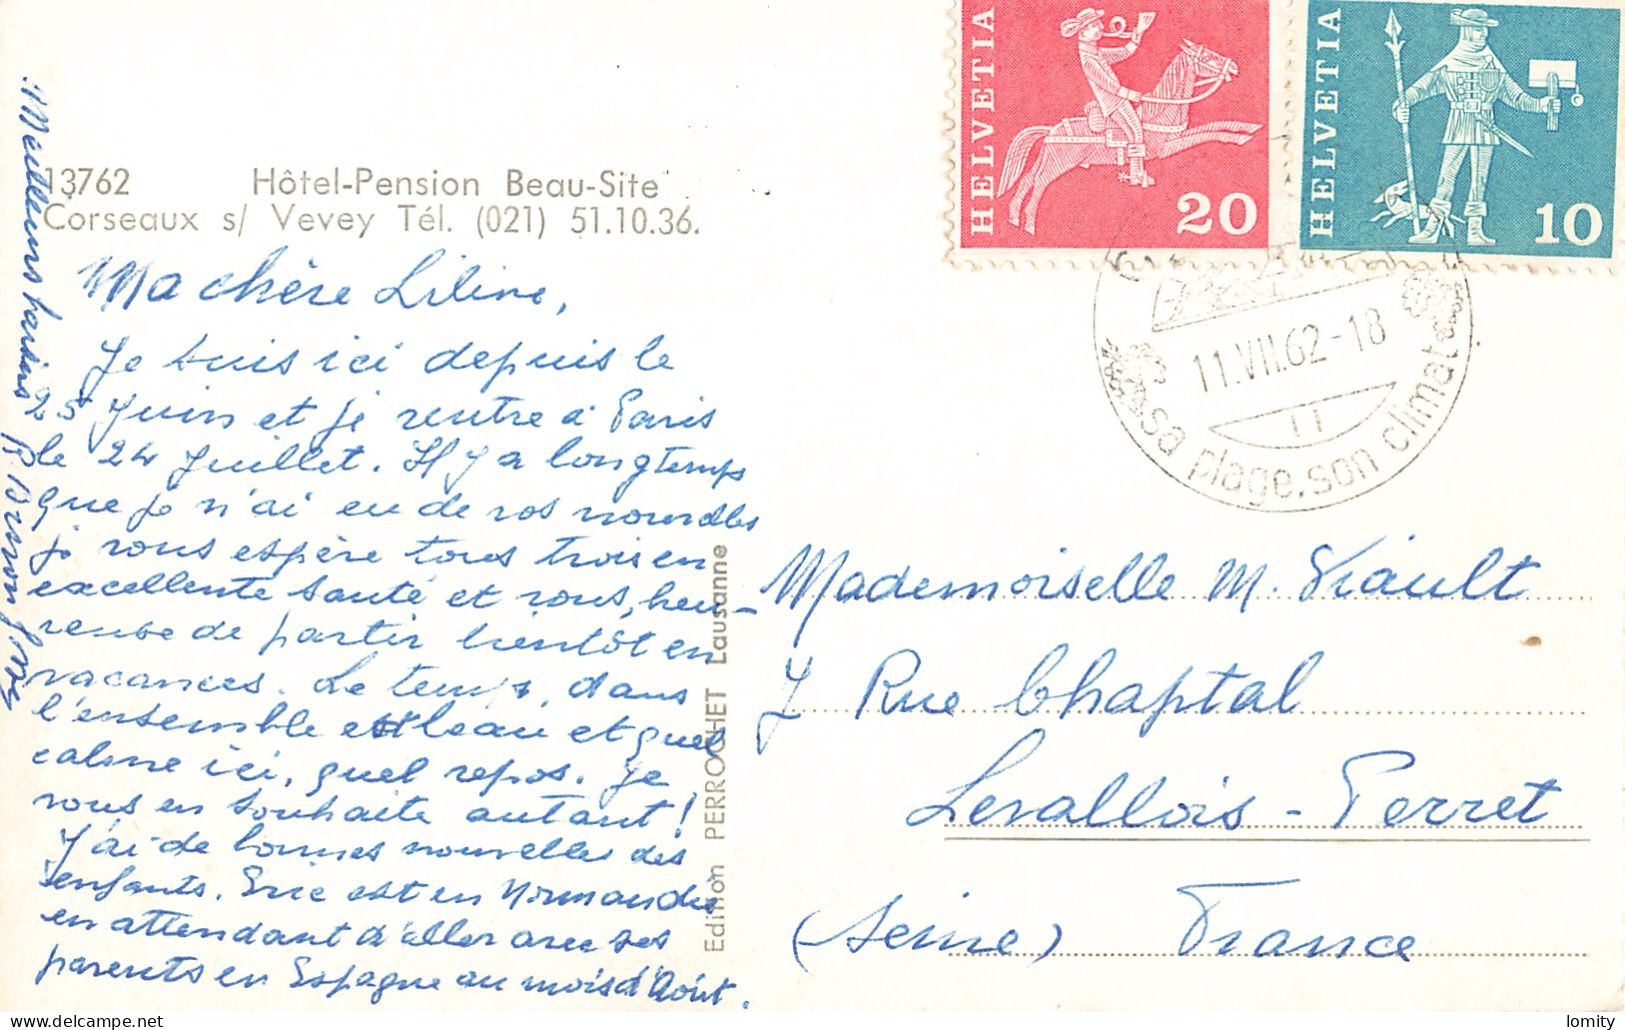 HELVETIA
20
HELVETIA
10
13762 Hôtel-Pension Beau-Site
Corseaux s/ Vevey Tél. (021) 51.10.36.
11.VII.62-18
sa plage, son climat
Ma chère Liline,
Je suis ici depuis le
25 Juin et je rentre à Paris
le 24 Juillet. Il y a longtemps
que je n'ai eu de vos nouvelles
je vous espère tous trois en
excellente santé et vous, heu-
reuse de partir bientôt en
vacances. Le temps, dans
l'ensemble est beau et quel
calme ici, quel repos. Je
vous en souhaite autant!
J'ai de bonnes nouvelles des
enfants. Eric est en Normandie
en attendant d'aller avec ses
parents en Espagne au mois d'Août.
Meilleurs baisers
Edition PERROCHET Lausanne
Mademoiselle M. Viault
7 Rue Chaptal
Levallois-Perret
(Seine) France
delcampe.net
lomity